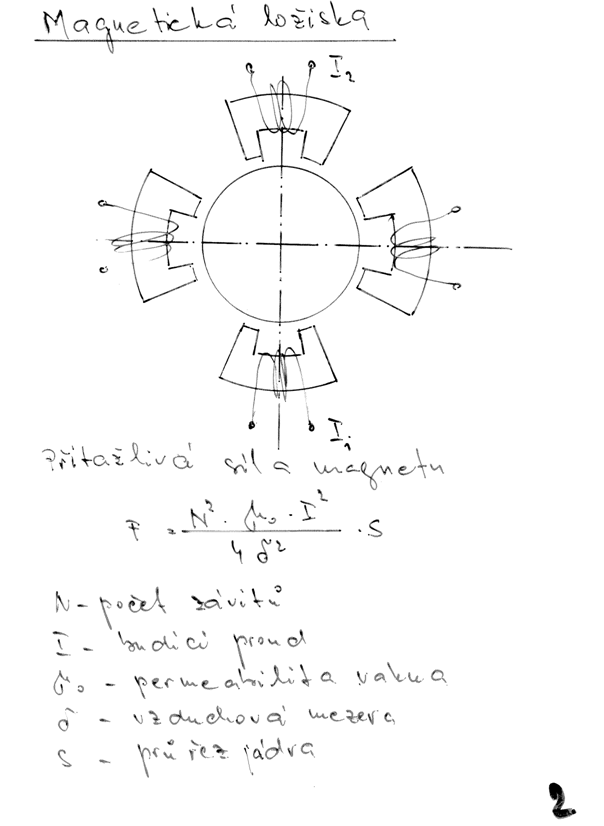 Magnetická ložiska
I₂
I₁
Přitažlivá síla magnetu
F = N² · μ₀ · I² / 4 δ² · S
N - počet závitů
I - budící proud
μ₀ - permeabilita vakua
δ - vzduchová mezera
S - průřez jádra
2